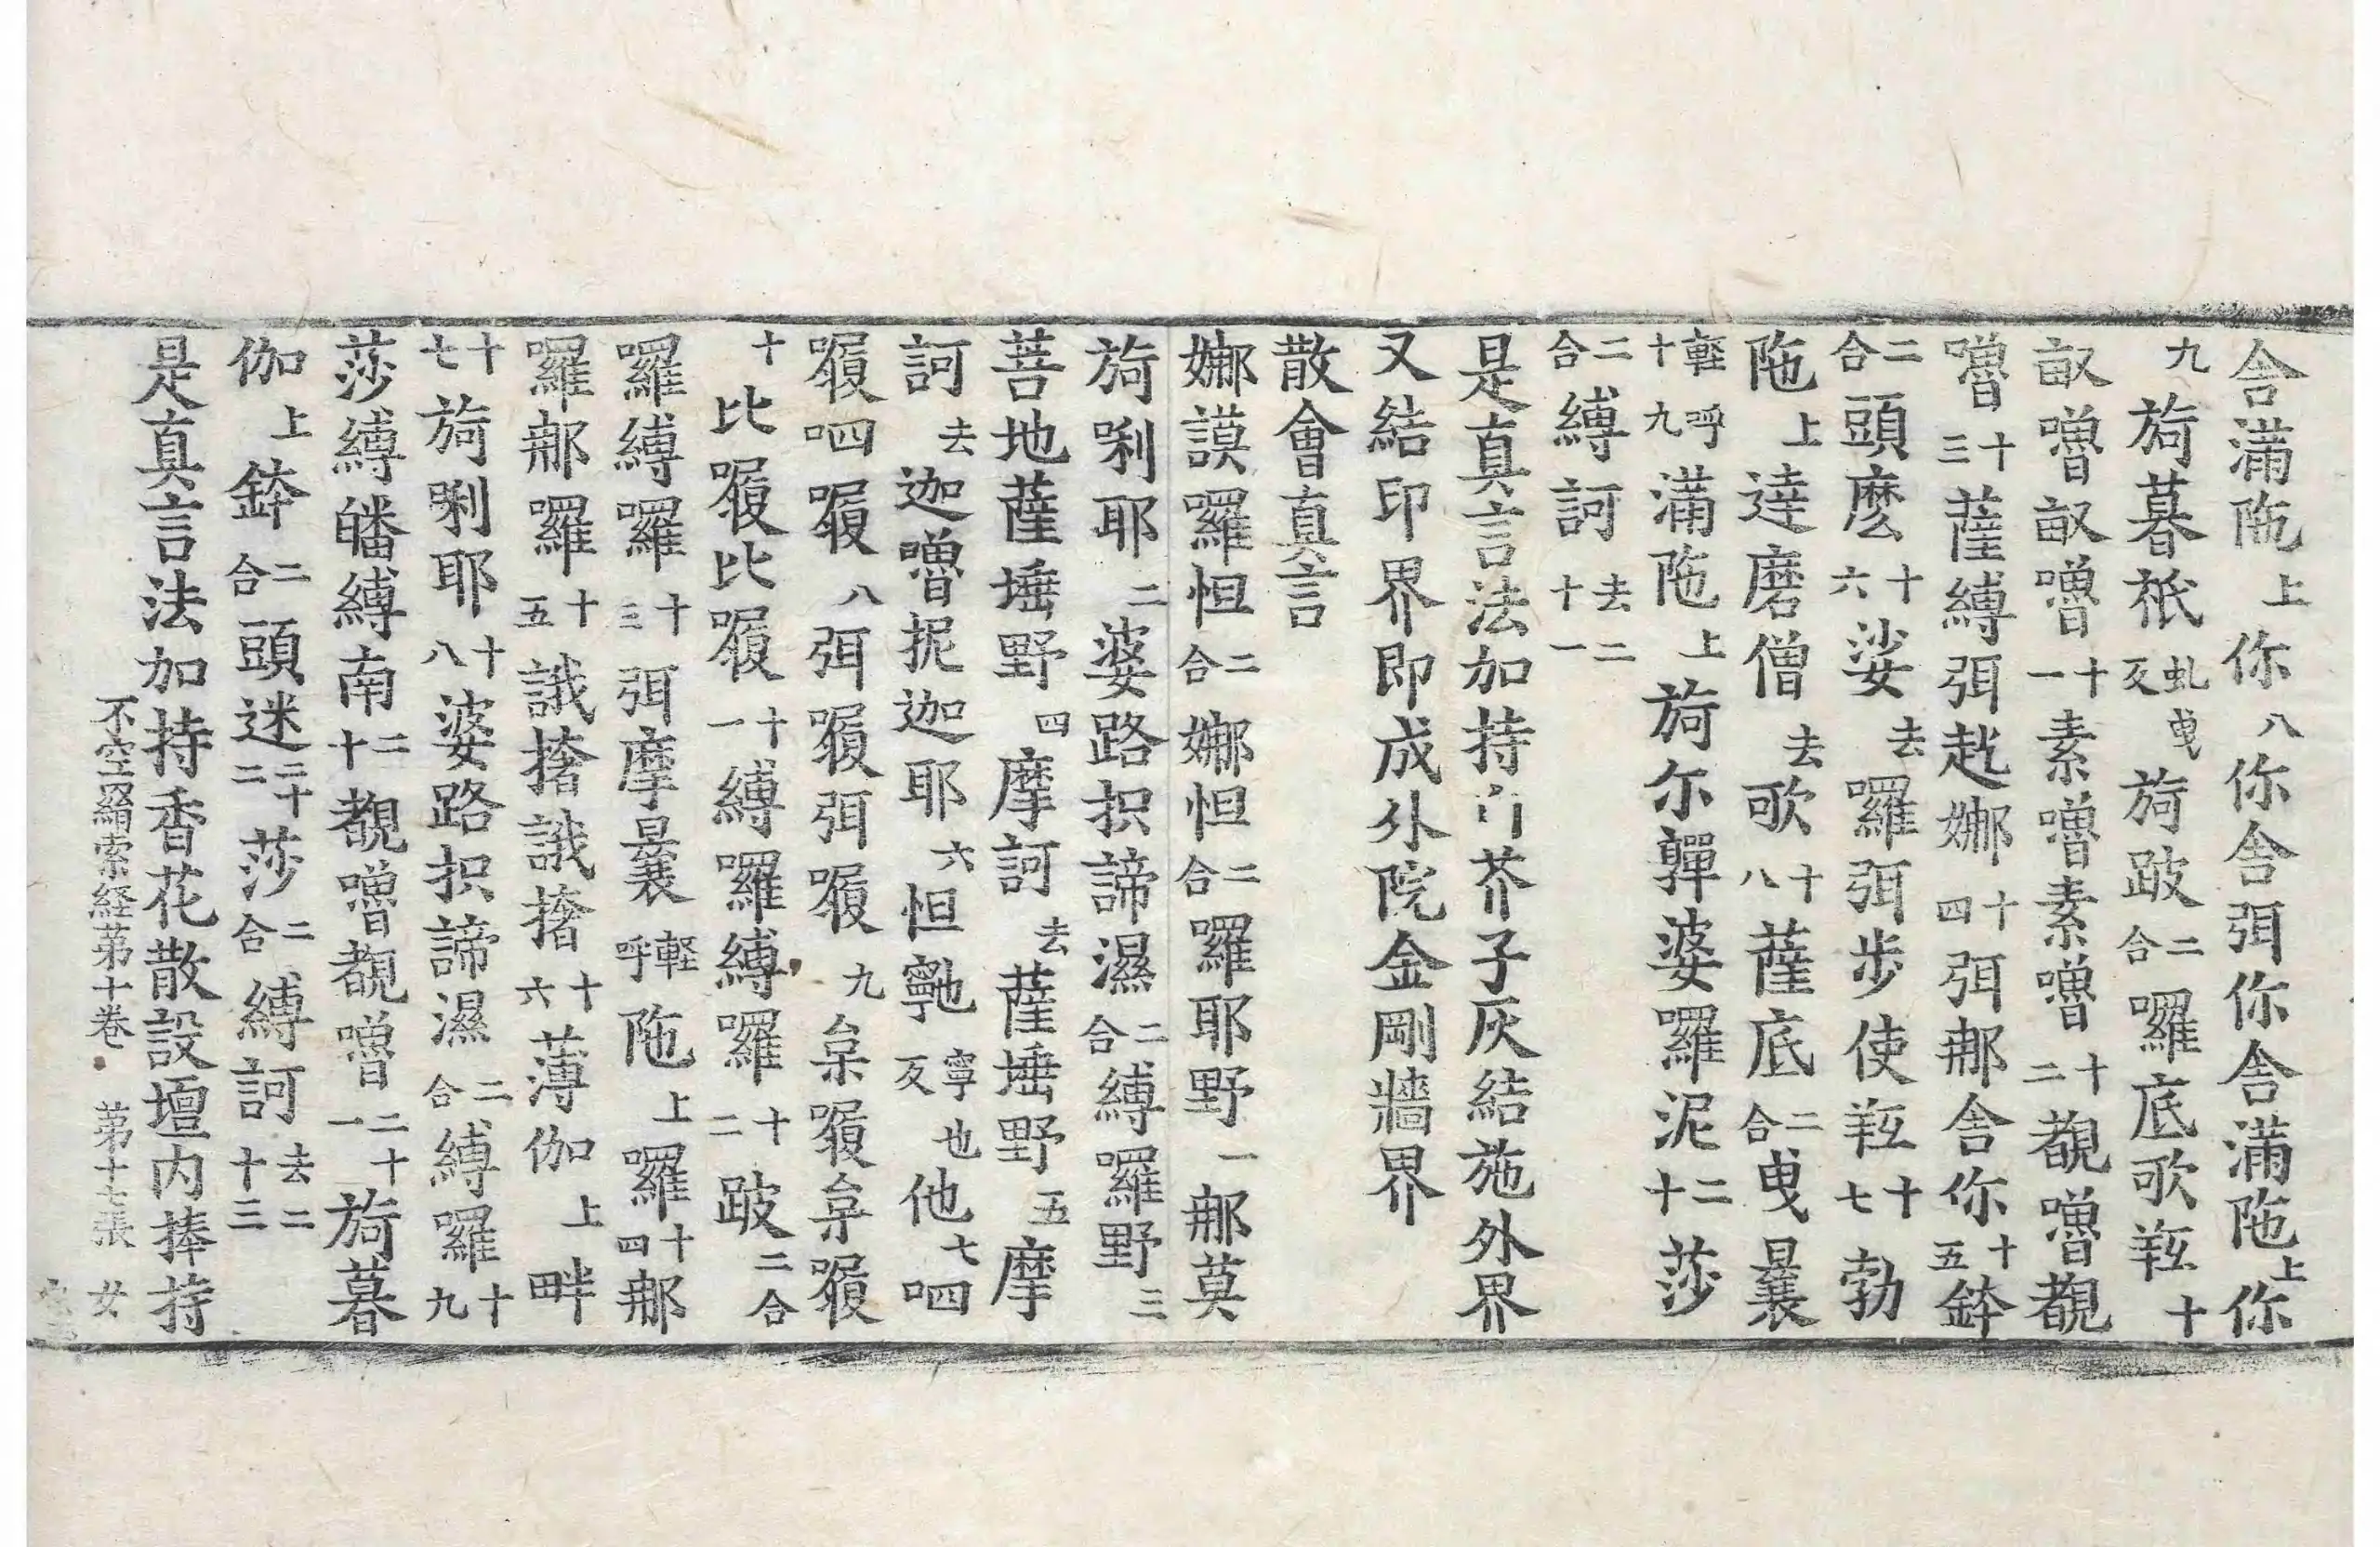 舍滿陁上你八你舍弭你舍滿陁上你
九旖暮秖虬曳反旖跛二合囉底歌𦍕十
㕡嚕㕡嚕十一素嚕素嚕十二覩嚕覩
嚕十三薩縛弭赴娜十四弭那舍你十五鉢
二合頭麽十六娑去囉弭步使𦍕十七勃
陁上達磨僧去歌十八薩底二合曳曩
輕呼十九滿陁上旖尓嚲婆囉泥二十莎
二合縛訶去二十一
是真言法加持白芥子灰結施外界
又結印界即成外院金剛牆界
散會真言
娜謨囉怛二合娜怛二合囉耶野一那莫
旖唎耶二婆路抧諦濕二合縛囉野三
菩地薩埵野四摩訶去薩埵野五摩
訶去迦嚕抳迦耶六怛寧也反他七呬
履呬履八弭履弭履九皐履皐履
十比履比履十一縛囉縛囉十二跛二合
囉縛囉十三弭摩曩輕呼陁上囉十四那
囉那囉十五誐撦誐撦十六薄伽上畔
十七旖唎耶十八婆路抧諦濕二合縛囉十九
莎縛皤縛南二十覩嚕覩嚕二十一旖暮
伽上鉢二合頭迷二十二莎二合縛訶去二十三
是真言法加持香花散設壇內捧持
不空羂索経苐十卷 苐十七張 女